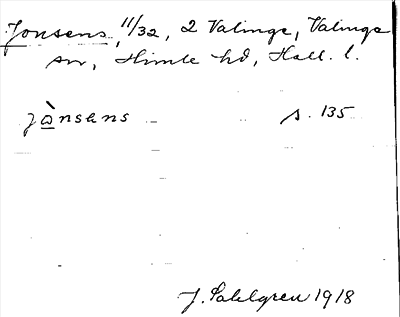 Jonsens, 11/32, 2 Valinge, Valinge
sn, Himle hd, Hall. l.
jònsens s. 135
J. Sahlgren 1918